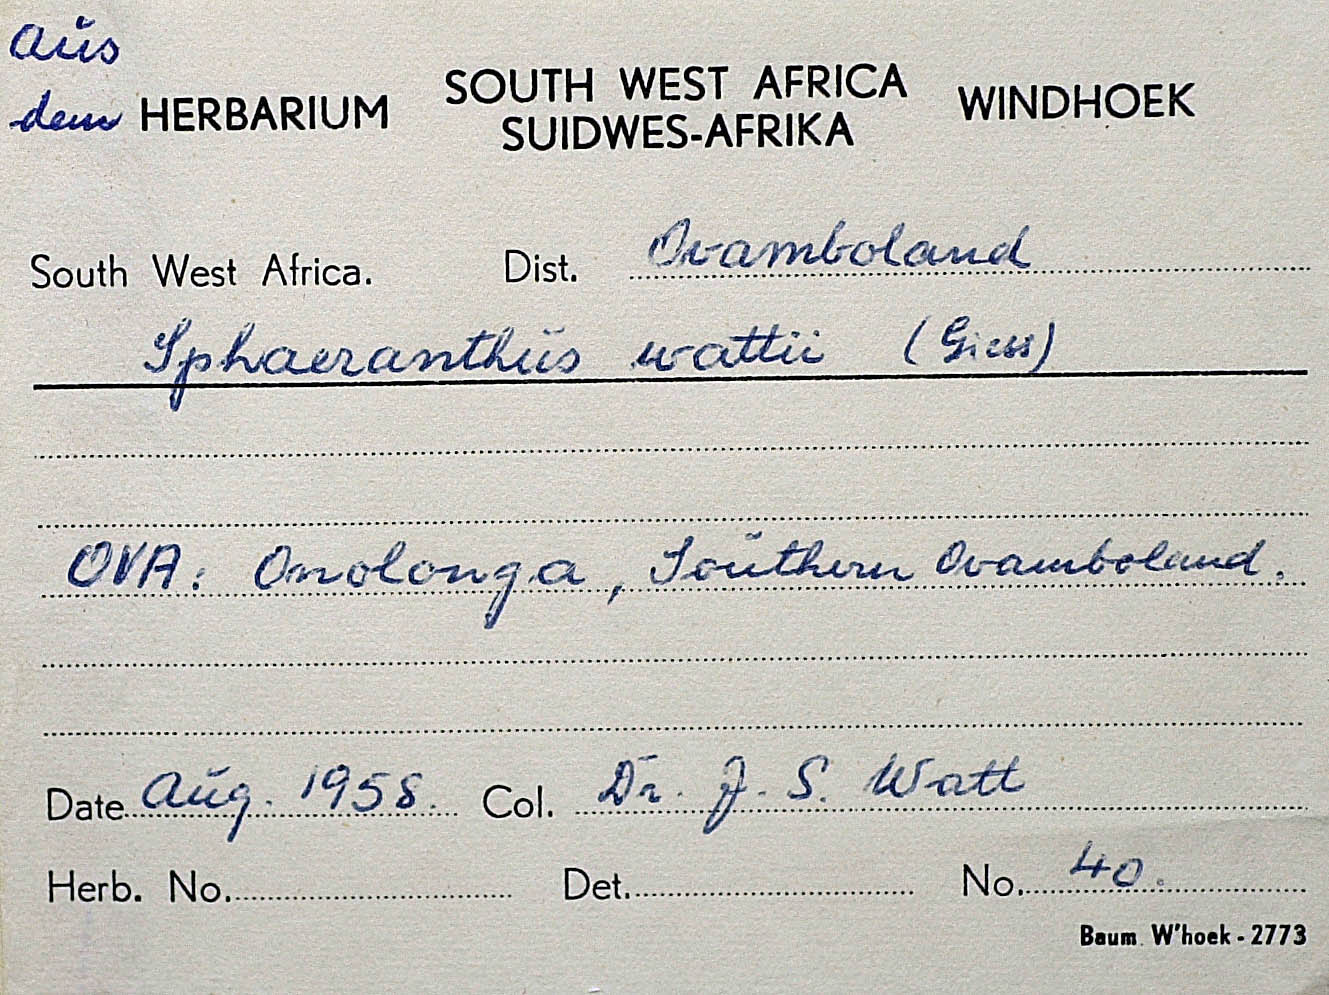 aus
dem HERBARIUM SOUTH WEST AFRICA WINDHOEK
SUIDWES-AFRIKA
South West Africa. Dist. Ovamboland
Sphaeranthus wattii (Giess)
OVA: Onolonga, Southern Ovamboland.
Date Aug. 1958. Col. Dr. J. S. Watt
Herb. No. Det. No. 40.
Baum. W'hoek - 2773